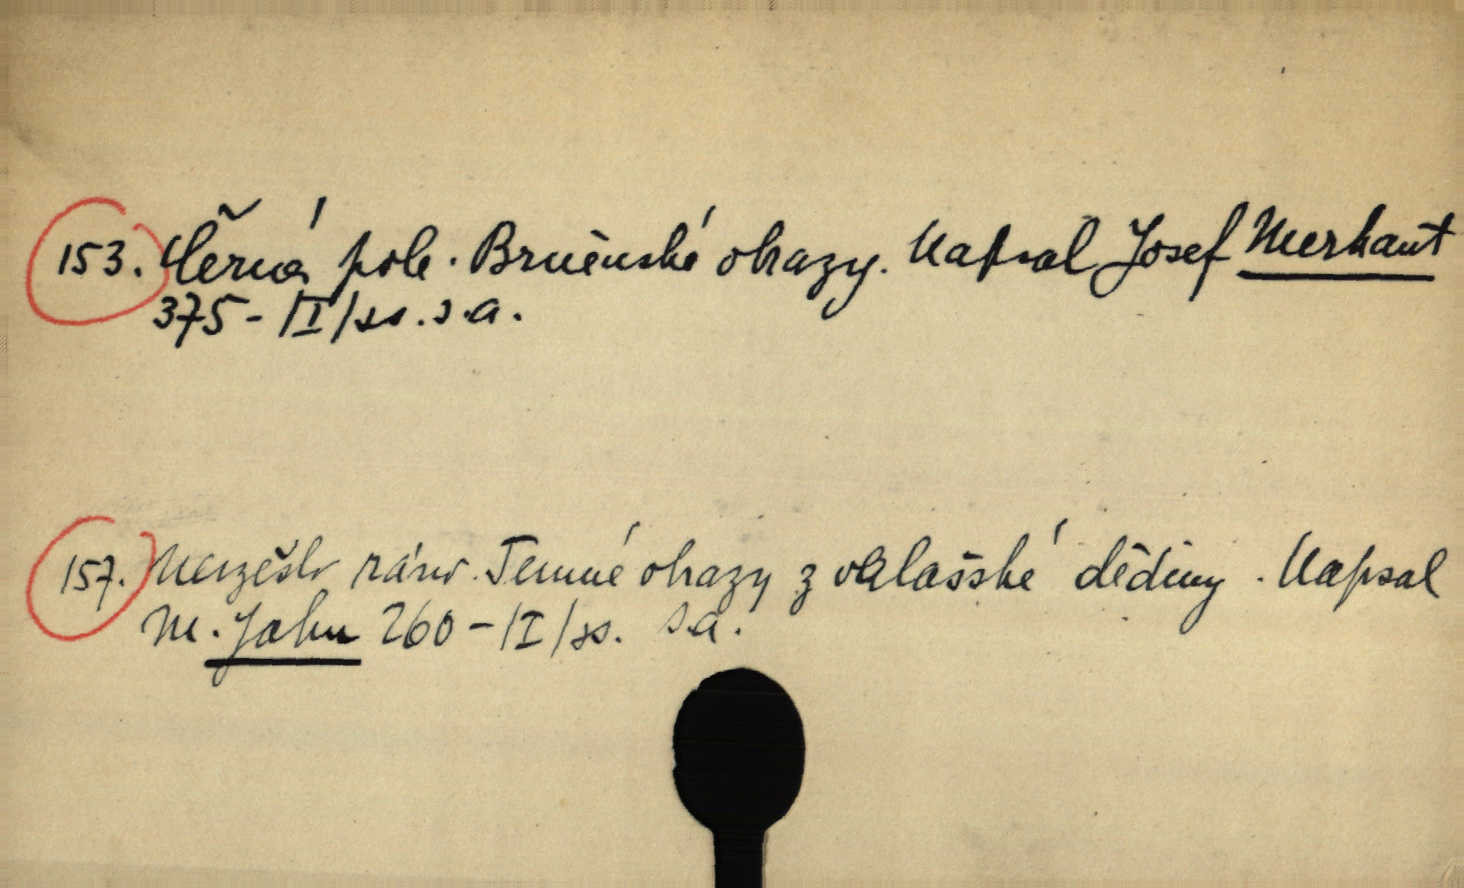 153. Černá pole. Brněnské obrazy. Napsal Josef Merhaut
375-/I/ss. s.a.
157. Nevzešlo ráno. Temné obrazy z valašské dědiny. Napsal
M. Jahn 260-/I/ss. s.a.